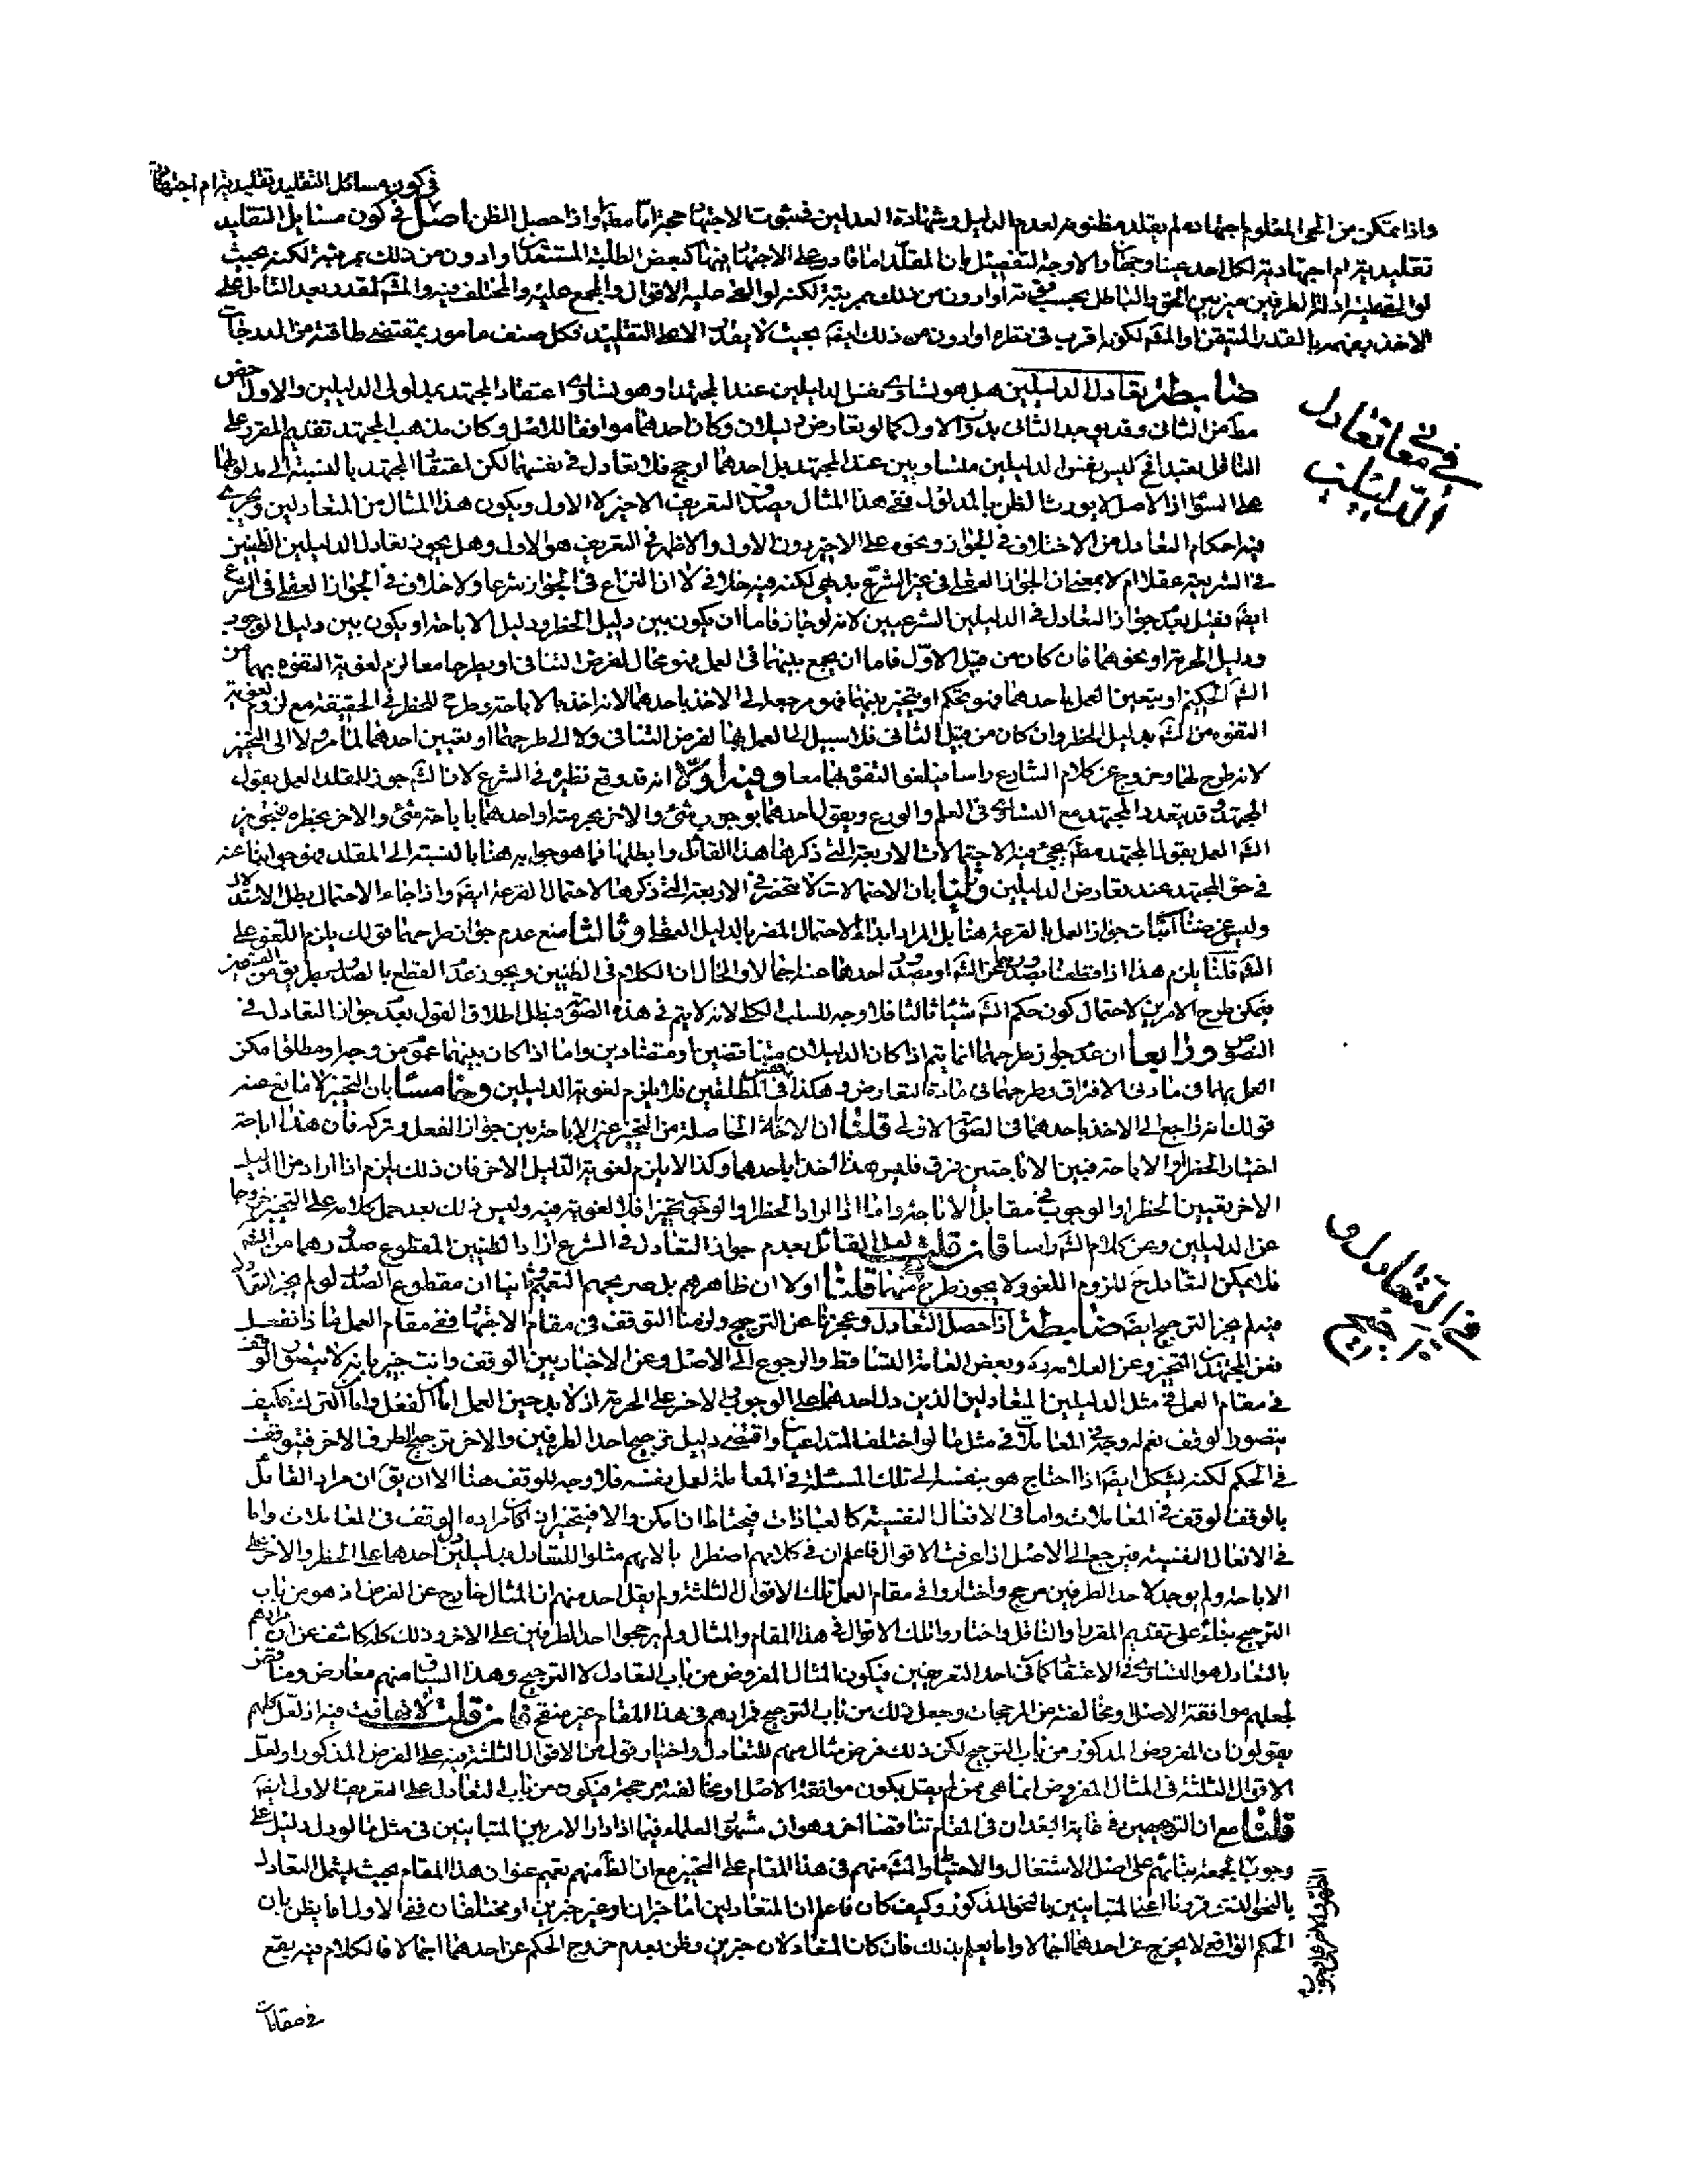 في كون مسائل التقليد تقليدية ام اجتهادية
واذا تمكن من الحي المعلوم اجتهاده لم يقلد مظنونه لعدم الدليل وشهادة العدلين في ثبوت الاجتها حجة اما مط او اذا حصل الظن اصل في كون مسايل التقليد
تقليدية ام اجتهادية لكل احد عينا او وجهان والاوجه التفصيل بان المقلد اما قادر على الاجتها فيها كبعض الطلبة المستعد او ادون من ذلك بمرتبة لكنه بحيث
لو القى عليه ادلة الطرفين ميز بين الحق والباطل بحسب قوته او ادون من ذلك بمرتبة لكنه لو القى عليه الاقوال والمجمع عليه والمختلف فيه والمشه لقدر بعد التأمل على
الاخذ منهم بالقدر المتيقن او المقم لكونه اقرب في نظره او ادون من ذلك ايضا بحيث لا يفد الا على التقليد فكل صنف مامور بمقتضى طاقته من الدرجات
في معنى تعادل الدليلين
ضابطة تعادل الدليلين هل هو تساوي نفس الدليلين عند المجتهد او هو تساوي اعتقاد المجتهد بمدلولي الدليلين والاول اخص
مط من الثاني وقد يوجد الثاني بدون الاول كما لو تعارض دليلان وكان احدهما موافقا للاصل وكان مذهب المجتهد تقديم المقرر على
الناقل تعبدا فح ليس نفس الدليلين متساويين عند المجتهد بل احدهما ارجح فلا تعادل في نفسهما لكن اعتقاد المجتهد بالنسبة الى مدلولهما
على السوا اذ الاصل لا يورث الظن بالمدلول ففي هذا المثال يصدق التعريف الاخير لا الاول ويكون هذا المثال من المتعادلين ويجري
فيه احكام التعادل من الاختلاف في الجواز ونحوه على الاخير دون الاول والاظهر في التعريف هو الاول وهل يجوز تعادل الدليلين الظنيين
في الشريعة عقلا ام لا بمعنى ان الجواز العقلي في غير الشرع بديهي لكنه فيه خلاف لا ان النزاع في الجواز شرعا ولا خلاف في الجواز العقلي في الشرع
ايضا فقيل بعدم جواز التعادل في الدليلين الشرعيين لانه لو جاز فاما ان يكون بين دليل الحظر ودليل الاباحة او يكون بين دليل الوجوب
ودليل الحرمة او نحوهما فان كان من قبيل الاول فاما ان يجمع بينهما في العمل فهو محال لفرض التنافي او يطرحا معا لزم لغوية التفوه بهما من
الشه الحكيم او يتعين العمل باحدهما فهو تحكم او يتخير بينهما فهو مرجعه الى الاخذ باحدهما لانه اخذ بالاباحة وطرح للحظر في الحقيقة مع لزوم لغوية
التفوه من الشه بدليل الحظر وان كان من قبيل الثاني فلا سبيل الى العمل بهما لفرض التنافي ولا الى طرحهما او تعيين احدهما لما مر ولا الى التخيير
لانه طرح لهما وخروج عن كلام الشارع راسا فيلغو التفوه بهما معا وفيه اولا انه قد وقع نظيره في الشرع لان الشه جوز للمقلد العمل بقول
المجتهد وقد يتعدد المجتهد مع التساوي في العلم والورع ويقول احدهما بوجوب شئ والاخر بحرمته او احدهما باباحة شئ والاخر بحظره فتجويز
الشه العمل بقول المجتهد مط يجئ فيه الاحتمالات الاربعة التي ذكرها هذا القائل وابطلها فما هو جوابه هنا بالنسبة الى المقلد فهو جوابنا عنه
في حق المجتهد عند تعارض الدليلين وثانيا بان الاحتمالات لا تنحصر في الاربعة التي ذكرها لاحتمال القرعة ايضا واذا جاء الاحتمال بطل الاستدلال
وليس غرضنا اثبات جواز العمل بالقرعة هنا بل المراد ابداء الاحتمال المضر بالدليل العقلي وثالثا منع عدم جواز طرحهما قولك يلزم اللغو على
الشه قلنا يلزم هذا اذا قطعنا بصدورهما عن الشه او بصدور احدهما عنه اجمالا والحال ان الكلام في الظنيين ويجوز عدم القطع بالصدور بطريق من الفريقين
فيمكن طرح الامرين لاحتمال كون حكم الشه شيئا ثالثا فلا وجه للسلب الكلي لانه لا يتم في هذه الصورة فبطل اطلاق القول بعدم جواز التعادل في
النصوص ورابعا ان عدم جواز طرحهما انما يتم اذا كان الدليلان متناقضين او متضادين واما اذا كان بينهما عموم من وجه او مطلقا امكن
العمل بهما في مادتي الافتراق وطرحهما في مادة التعارض وهكذا في المطلقين فلا يلزم لغوية الدليلين وخامسا بان التخيير لا مانع عنه
قولك انه راجع الى الاخذ باحدهما في الصورة الاولى قلنا ان الاباحة الحاصلة من التخيير غير الاباحة بين جواز الفعل وتركه فان هذا اباحة
اختيار الحظر او الاباحة فبين الاباحتين فرق فليس هذا اخذا باحدهما وكذا لا يلزم لغوية الدليل الاخر فان ذلك يلزم اذا اراد من الدليل
الاخر تعيين الحظر او الوجوب في مقابل الاباحة واما اذا اراد الحظر او الوجوب تخييرا فلا لغوية فيه وليس ذلك بعد حمل كلامه على التخيير خروجا
عن الدليلين وعن كلام الشه راسا فان قلت لعل القائل بعدم جواز التعادل في الشرع اراد الظنيين المقطوع صدورهما من الشه
فلا يمكن التعادل ح للزوم اللغو ولا يجوز طرح منهما قلنا اولا ان ظاهرهم بل صريحهم التعميم وثانيا ان مقطوع الصدور لو لم يجز التعادل
في التعادل والترجيح
فيه لم يجز الترجيح ايضا ضابطة اذا حصل التعادل وعجزنا عن الترجيح ولزمنا التوقف في مقام الاجتها ففي مقام العمل ماذا نفعل
فعن المجتهدين التخيير وعن العلامة ره وبعض العامة التساقط والرجوع الى الاصل وعن الاخباريين الوقف وانت خبير بانه لا يتصور الوقف
في مقام العمل في مثل الدليلين المتعادلين الذين دل احدهما على الوجوب والاخر على الحرمة اذ لا بد حين العمل اما الفعل واما الترك فكيف
يتصور الوقف نعم له وجه في المعاملات في مثل ما لو اختلف المتداعيان واقتضى دليل ترجيح احد الطرفين والاخر ترجيح الطرف الاخر فيتوقف
في الحكم لكنه يشكل ايضا اذا احتاج هو بنفسه الى تلك المسئلة في المعاملة لعمل نفسه فلا وجه للوقف هنا الا ان يق ان مراد القائل
بالوقف الوقف في المعاملات واما في الافعال النفسية كالعبادات فيحتاط ان امكن والا فيتخير او كان مراده الوقف في المعاملات واما
في الافعال النفسية فيرجع الى الاصل اذا عرفت الاقوال فاعلم ان في كلامهم اضطرابا لانهم مثلوا للتعادل بدليلين دل احدهما على الحظر والاخر على
الاباحة ولم يوجد لاحد الطرفين مرجح واختاروا في مقام العمل تلك الاقوال الثلثة ولم يقل احد منهم ان المثال خارج عن الفرض اذ هو من باب
الترجيح بناء على تقديم المقرر او الناقل واختاروا تلك الاقوال في هذا المقام والمثال ولم يرجحوا احد الطرفين على الاخر وذلك كله كاشف عن ان مرادهم
بالتعادل هو التساوي في الاعتقاد كما في احد التعريفين فيكون المثال المفروض من باب التعادل لا الترجيح وهذا السياق منهم معارض ومناقض
لجعلهم موافقة الاصل ومخالفته من المرجحات وجعل ذلك من باب الترجيح فمرادهم في هذا المقام غير منقح فان قلت لا تهافت فيه اذ لعل كلهم
يقولون ان المفروض المذكور من باب الترجيح لكن ذلك فرض مثال منهم للتعادل واختيار قول من الاقوال الثلثة فيه على الفرض المذكور او لعل
الاقوال الثلثة في المثال المفروض انما هي ممن لم يقل بكون موافقة الاصل او مخالفته مرجحة فيكون من باب التعادل على التعريف الاول ايضا
قلنا مع ان التوجيهين في غاية البعد ان في المقام تناقضا اخر وهو ان مشهور العلماء فيما اذا دار الامر بين المتباينين في مثل ما لو دل دليل على
وجوب الجمعة بنائهم على اصل الاشتغال والاحتياط والمشه منهم في هذا المقام على التخيير مع ان الظ منهم تعميم عنوان هذا المقام بحيث يشمل التعادل
بالنحو الذي قررنا اعني المتباينين بالنحو المذكور وكيف كان فاعلم ان المتعادلين اما خبران او غير خبرين او مختلفان ففي الاول اما يظن بان
الحكم الواقعي لا يخرج عن احدهما اجمالا واما يعلم بذلك فان كان المتعادلان خبرين وظن بعدم خروج الحكم عن احدهما اجمالا فالكلام فيه يقع
في مقامات